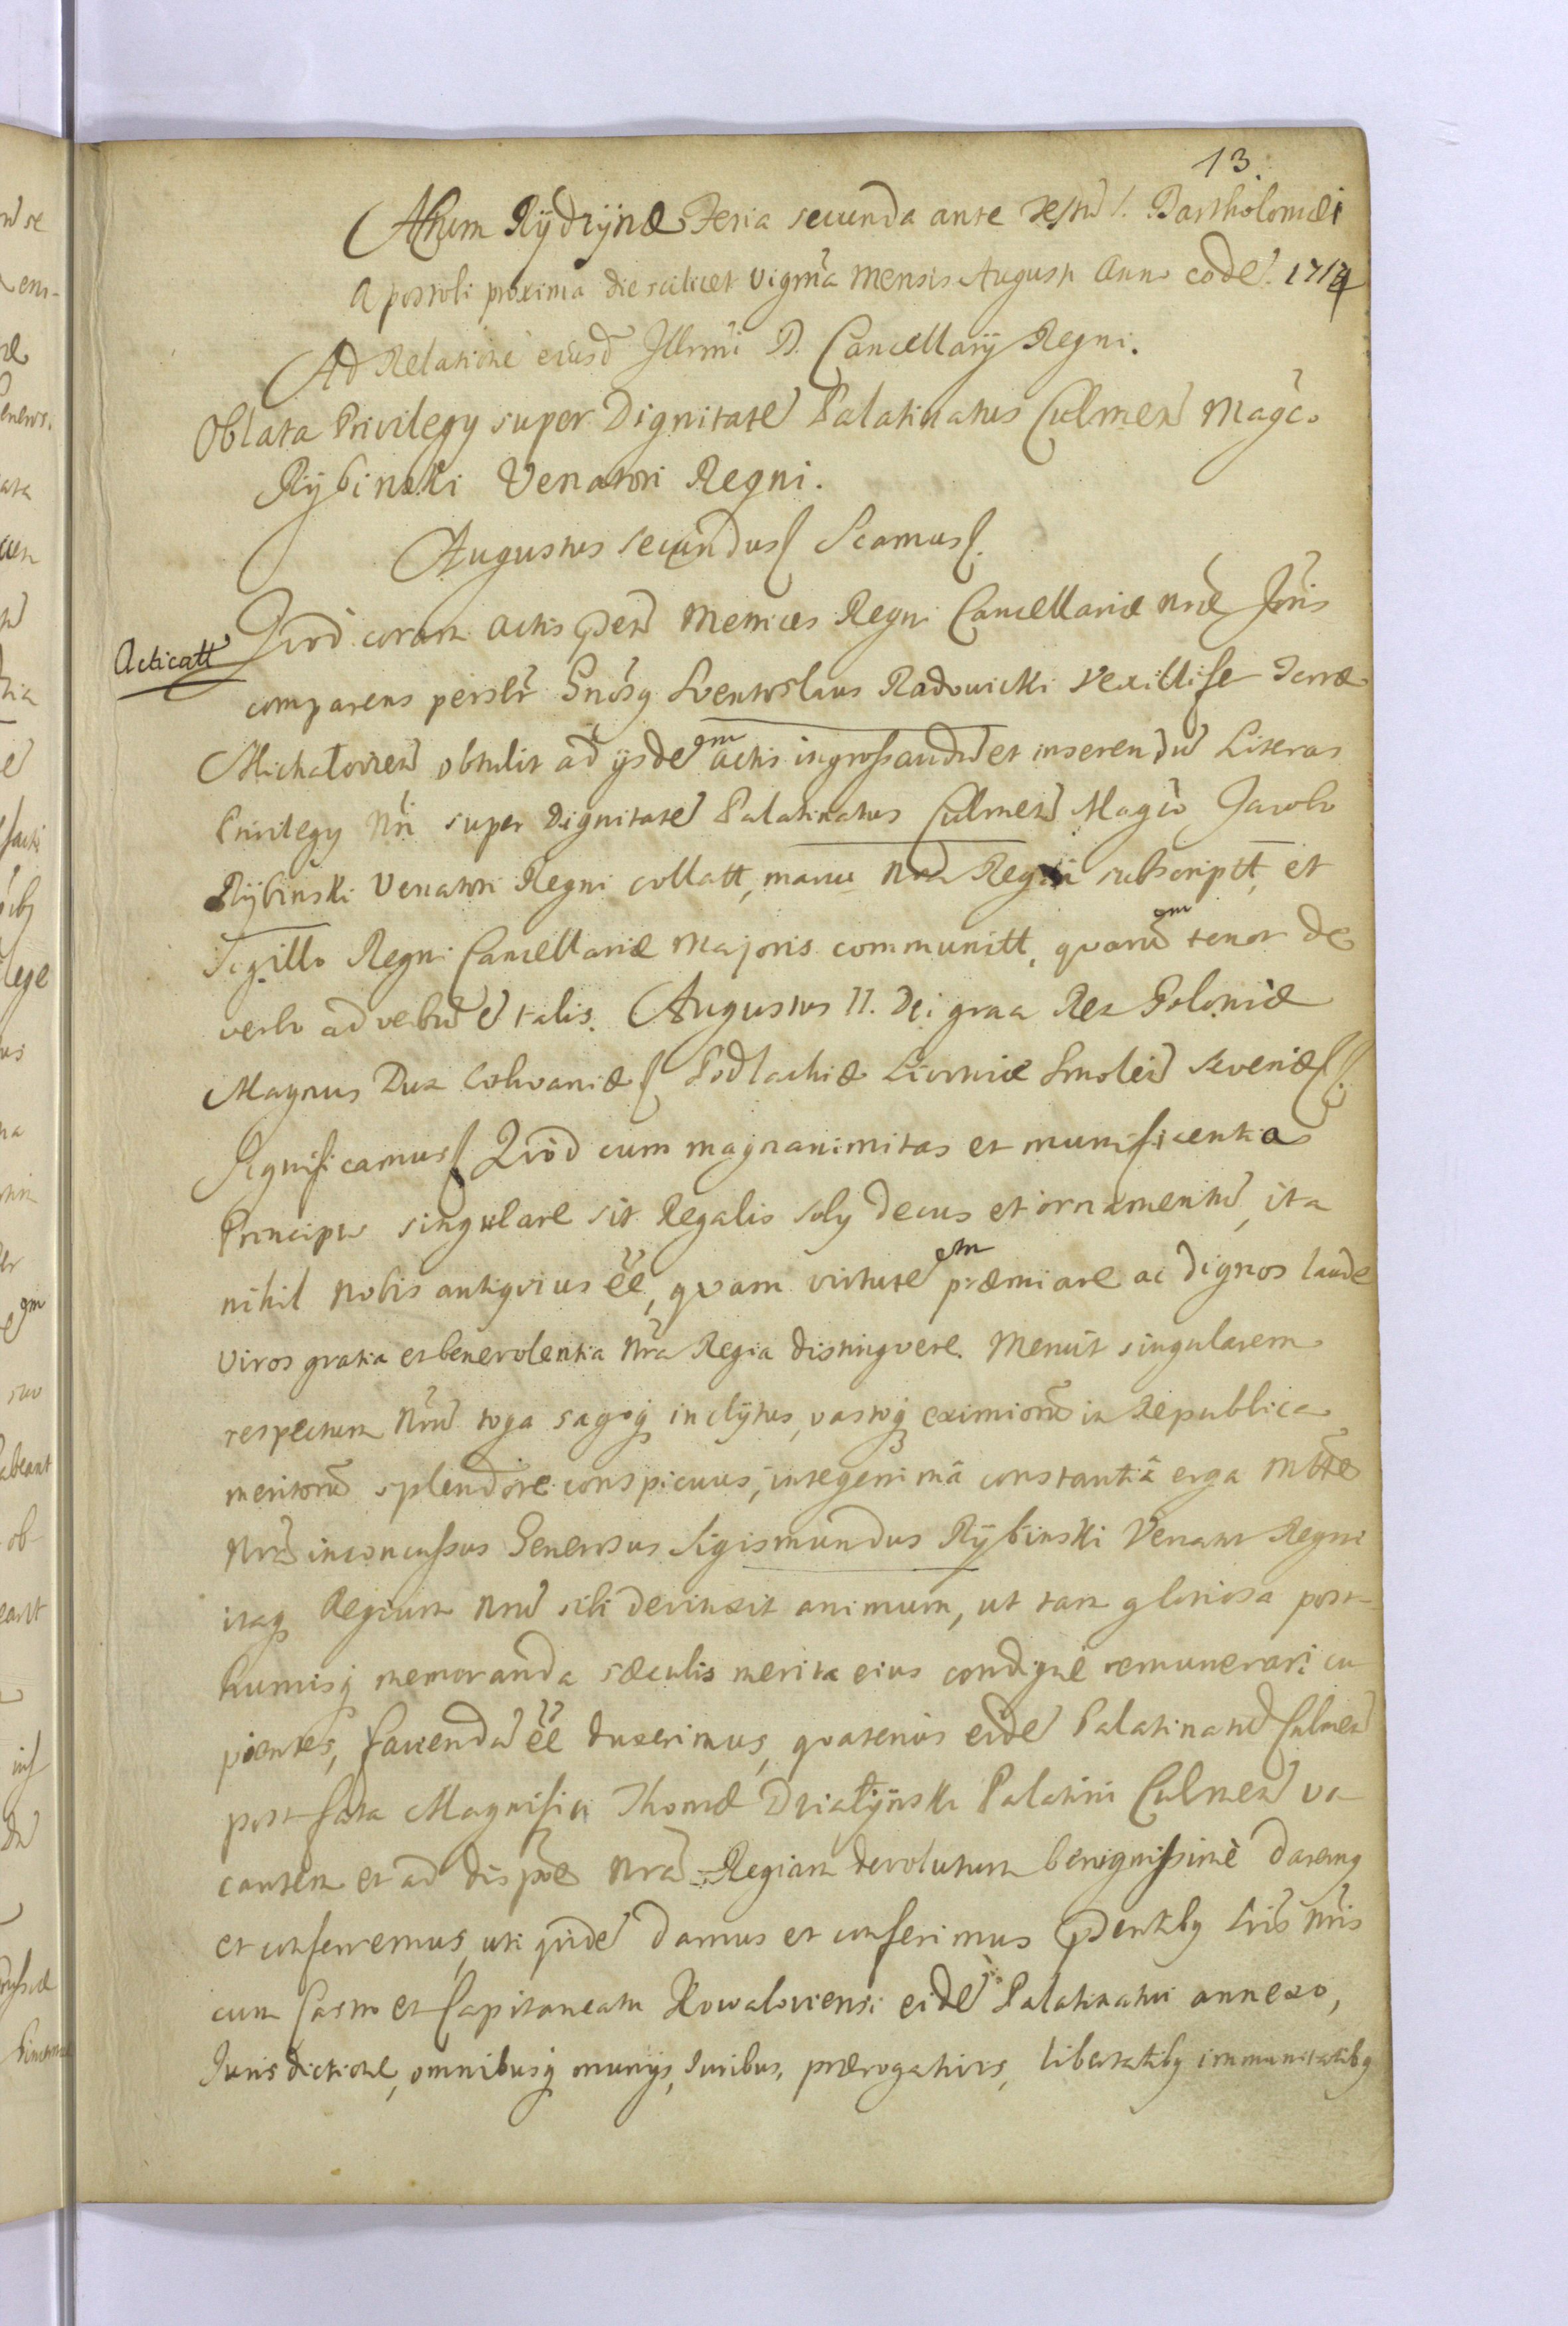 13.
Actum Rÿdzÿnæ Feria secunda ante Festū S. Bartholomæi
Apostoli proxima die scilicet Vigma Mensis Augusti Anno eodē. 1714
Ad Relationē eiusd Illrmi D. Cancellarÿ Regni.
Oblata Privilegÿ super Dignitatē Palatinatus Culmen Magco
Rÿbinski Venatori Regni.
Augustus Secundus Scamus.
Acticatt
Quod coram Actis pñtū Metrices Regni Cancellariæ nræ Joris
comparens persltr Gnosq Sventoslaus Radowicki Vexillifer Terræ
Michałovien obtulit ad ÿsdem actis ingrossandū et inserendū Literas
Privilegÿ Nri super Dignitatē Palatinatus Culmen Magco Jacobo
Rÿbinski Venatori Regni collatt, manu Nra Regia subscriptt, et
Sigillo Regni Cancellariæ Majoris communitt, qvarum tenor de
verbo ad verbū ē talis. Augustus II. Dei graa Rex Poloniæ
Magnus Dux Lithvaniæ Podlachiæ Livoniæ Smolen Seveniæ
Significamus Qvod cum magnanimitas et munificentia
Principū singulare sit Regalis solÿ decus et ornamentū, ita
nihil nobis antiqvius ēē, qvam virtutem præmiare ac dignos laude
viros gratia et benevolentia nra Regia distingvere. Meruit singularem
respectum Nrū toga sagoq inclÿtus, vastoq eximiorū in Republica
meritorū splendore conspicuus, integerrimâ constantiâ erga Mtte
Nrā inconcussus Generosus Sigismundus Rÿbinski Venator Regni
itaq Regium Nrū sibi devinxit animum, ut tam gloriosa post-
humisq memoranda sæculis merita eius condignè remunerari cu
pientes, faciendū ēē duxerimus, qvatenus eidē Palatinatū Culmen
post fata Magnifici Thomæ Działÿnski Palatini Culmen va
cantem et ad dispoē nrā Regiam devolutum benignissimè daremq
et conferremus, uti qdē damus et conferimus pñtibq Lris Nris
cum Castro et Capitaneatu Kowaloviensi eidē Palatinatui annexo,
Jurisdictione, omnibusq munÿs, Juribus, prærogativis, libertatibq immunitatibq